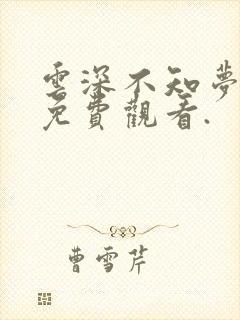 雲深不知夢
免費觀看.
曹雪芹